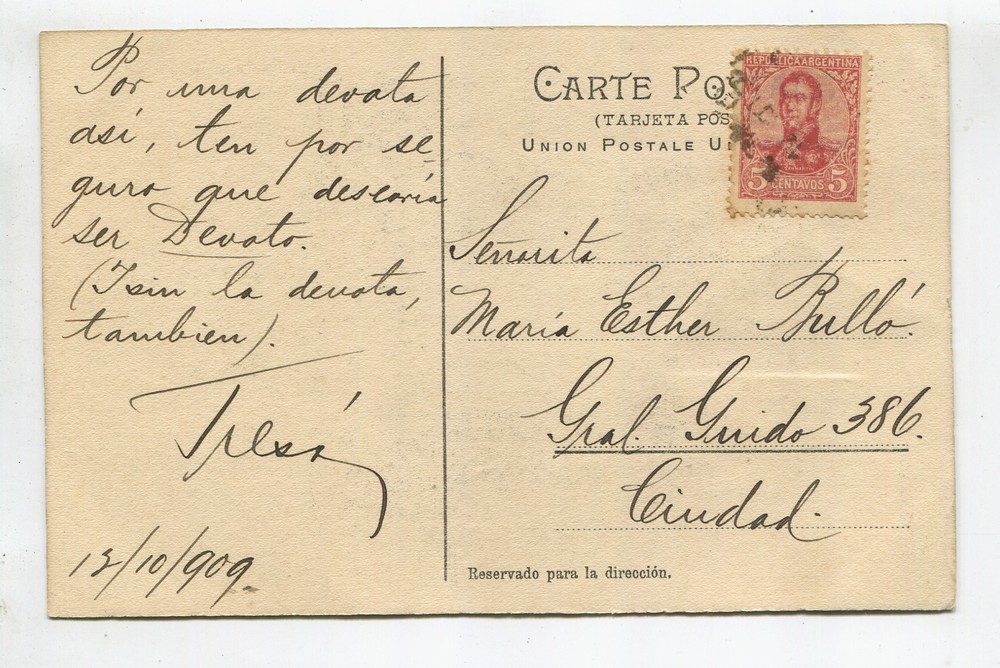 Por una devota
así, ten por se-
guro que desearía
ser Devoto.
(Y sin la devota,
tambien).
12/10/909.
CARTE PO
(TARJETA POS
UNION POSTALE U
REPÚBLICA ARGENTINA
5 CENTAVOS 5
Señorita
María Esther Bulló.
Gral. Guido 386.
Ciudad.
Reservado para la dirección.